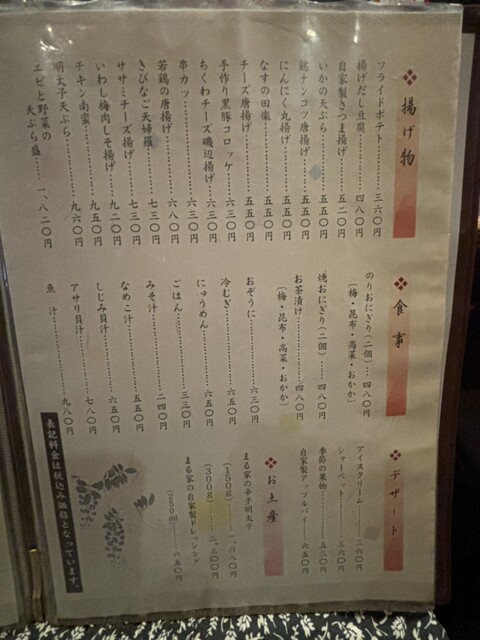 ❖揚げ物
フライドポテト……三六〇円
揚げだし豆腐……四八〇円
自家製さつま揚げ……五二〇円
いかの天ぷら……五五〇円
鶏ナンコツ唐揚げ……五五〇円
にんにく丸揚げ……五五〇円
なすの田楽……五五〇円
チーズ唐揚げ……五五〇円
手作り黒豚コロッケ……六三〇円
ちくわチーズ磯辺揚げ……六三〇円
串カツ……六三〇円
若鶏の唐揚げ……六八〇円
きびなご天婦羅……七三〇円
ササミチーズ揚げ……七三〇円
いわし梅肉しそ揚げ……九二〇円
チキン南蛮……九五〇円
明太子天ぷら……九六〇円
エビと野菜の
天ぷら盛……一、八二〇円
❖食事
のりおにぎり(二個)…四八〇円
(梅・昆布・高菜・おかか)
焼おにぎり(二個)……四八〇円
お茶漬け……四八〇円
(梅・昆布・高菜・おかか)
おぞうに……六三〇円
冷むぎ……六五〇円
にゅうめん……六五〇円
ごはん……三三〇円
みそ汁……二四〇円
なめこ汁……五五〇円
しじみ貝汁……六五〇円
アサリ貝汁……七八〇円
魚汁……九八〇円
❖デザート
アイスクリーム……三六〇円
シャーベット……三六〇円
季節の果物……五三〇円
自家製アップルパイ……六五〇円
❖お土産
まる家の辛子明太子
(150g)……一、〇八〇円
(300g)……二、三〇〇円
まる家の自家製ドレッシング
(250ml)……六五〇円
表記料金は税込み価格となっています。